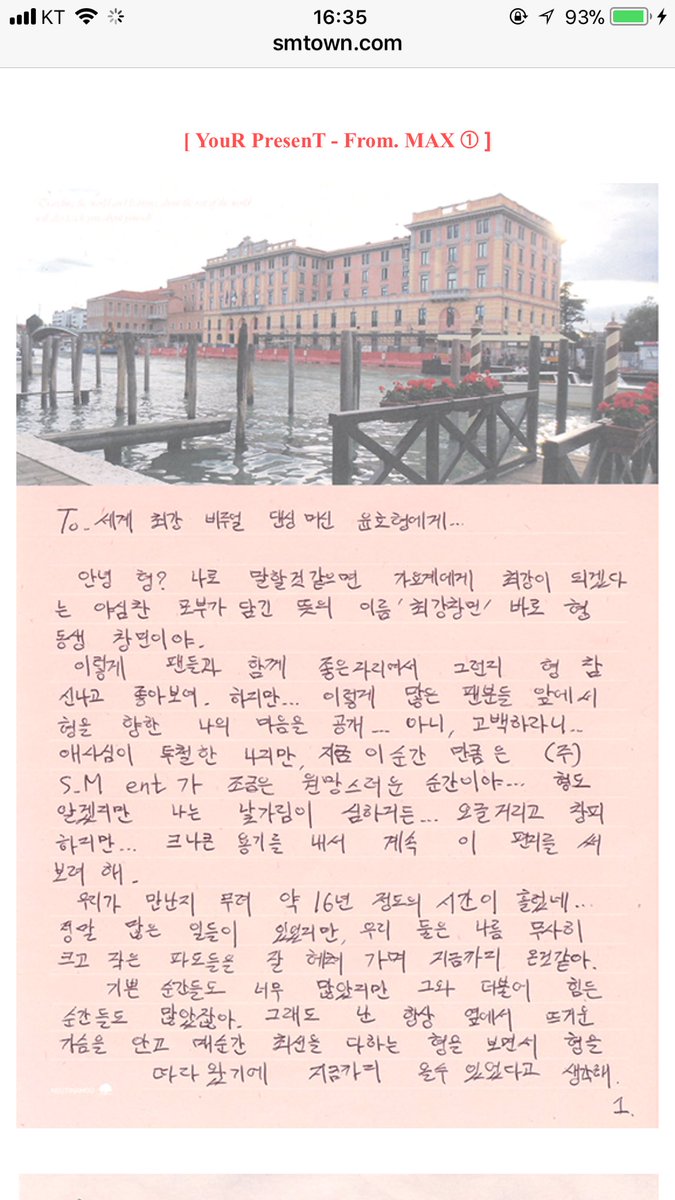 KT 16:35 93%
smtown.com
[ YouR PresenT - From. MAX ① ]
To_ 세계 최강 비쥬얼 댄싱 머신 윤호형에게...
안녕 형? 나로 말할것 같으면 가요계에게 최강이 되겠다
는 야심찬 포부가 담긴 뜻의 이름 '최강창민' 바로 형
동생 창민이야.
이렇게 팬들과 함께 좋은자리여서 그런지 형 참
신나고 좋아보여. 하지만... 이렇게 많은 팬분들 앞에서
형을 향한 나의 마음을 공개... 아니, 고백하라니...
애사심이 투철한 나지만, 지금 이 순간 만큼은 (주)
S.M ent가 조금은 원망스러운 순간이야... 형도
알겠지만 나는 낯가림이 심하거든... 오글거리고 창피
하지만... 크나큰 용기를 내서 계속 이 편지를 써
보려 해.
우리가 만난지 무려 약 16년 정도의 시간이 흘렀네...
정말 많은 일들이 있었지만, 우리 둘은 나름 무사히
크고 작은 파도들을 잘 헤쳐 가며 지금까지 온것같아.
기쁜 순간들도 너무 많았지만 그와 더불어 힘든
순간들도 많았잖아. 그래도 난 항상 옆에서 뜨거운
가슴을 안고 매순간 최선을 다하는 형을 보면서 형을
따라 왔기에 지금까지 올수 있었다고 생각해.
1.